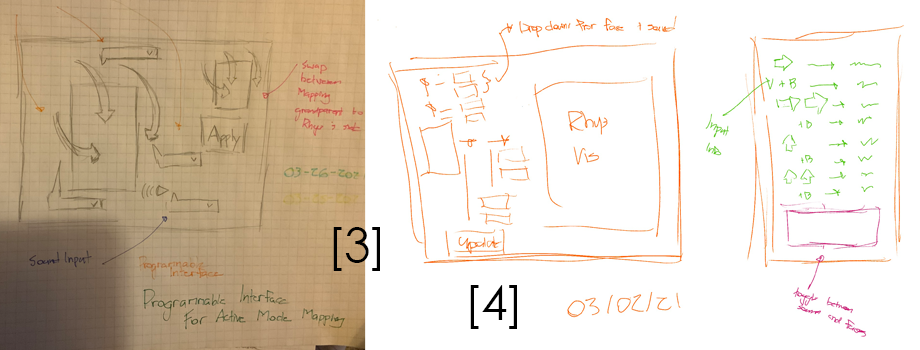 swap
between
Mapping
Rhys's
Apply
03-26-202
Sound Input
Programmable
Interface
Programmable Interface
For Active Mode Mapping
[3]
Drop down for face + sound
Rhys
Vis
Update
[4]
03/02/21
V + B
+B
+B
+B
Input
toggle between
and